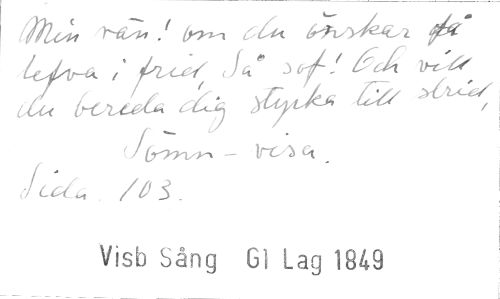 Min vän! om du önskar få
lefva i frid, Så sof! Och vill
du bereda dig styrka till strid,
Sömn-visa.
Sida. 103.
Visb Sång Gl Lag 1849